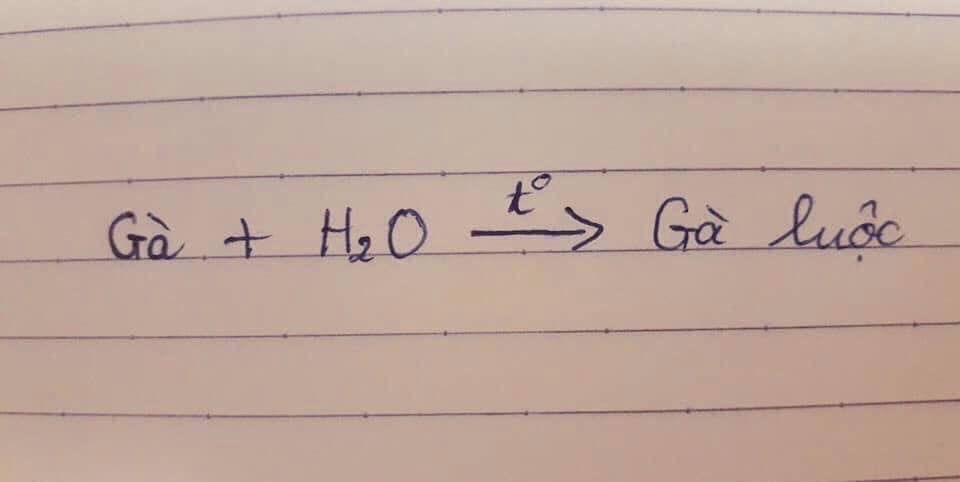 Gà + H₂O –t°→ Gà luộc